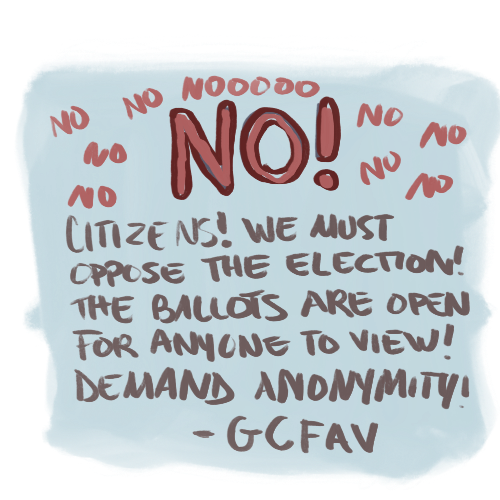 NO NO NOOOOO NO NO
NO NO! NO
NO NO
CITIZENS! WE MUST
OPPOSE THE ELECTION!
THE BALLOTS ARE OPEN
FOR ANYONE TO VIEW!
DEMAND ANONYMITY!
- GCFAV